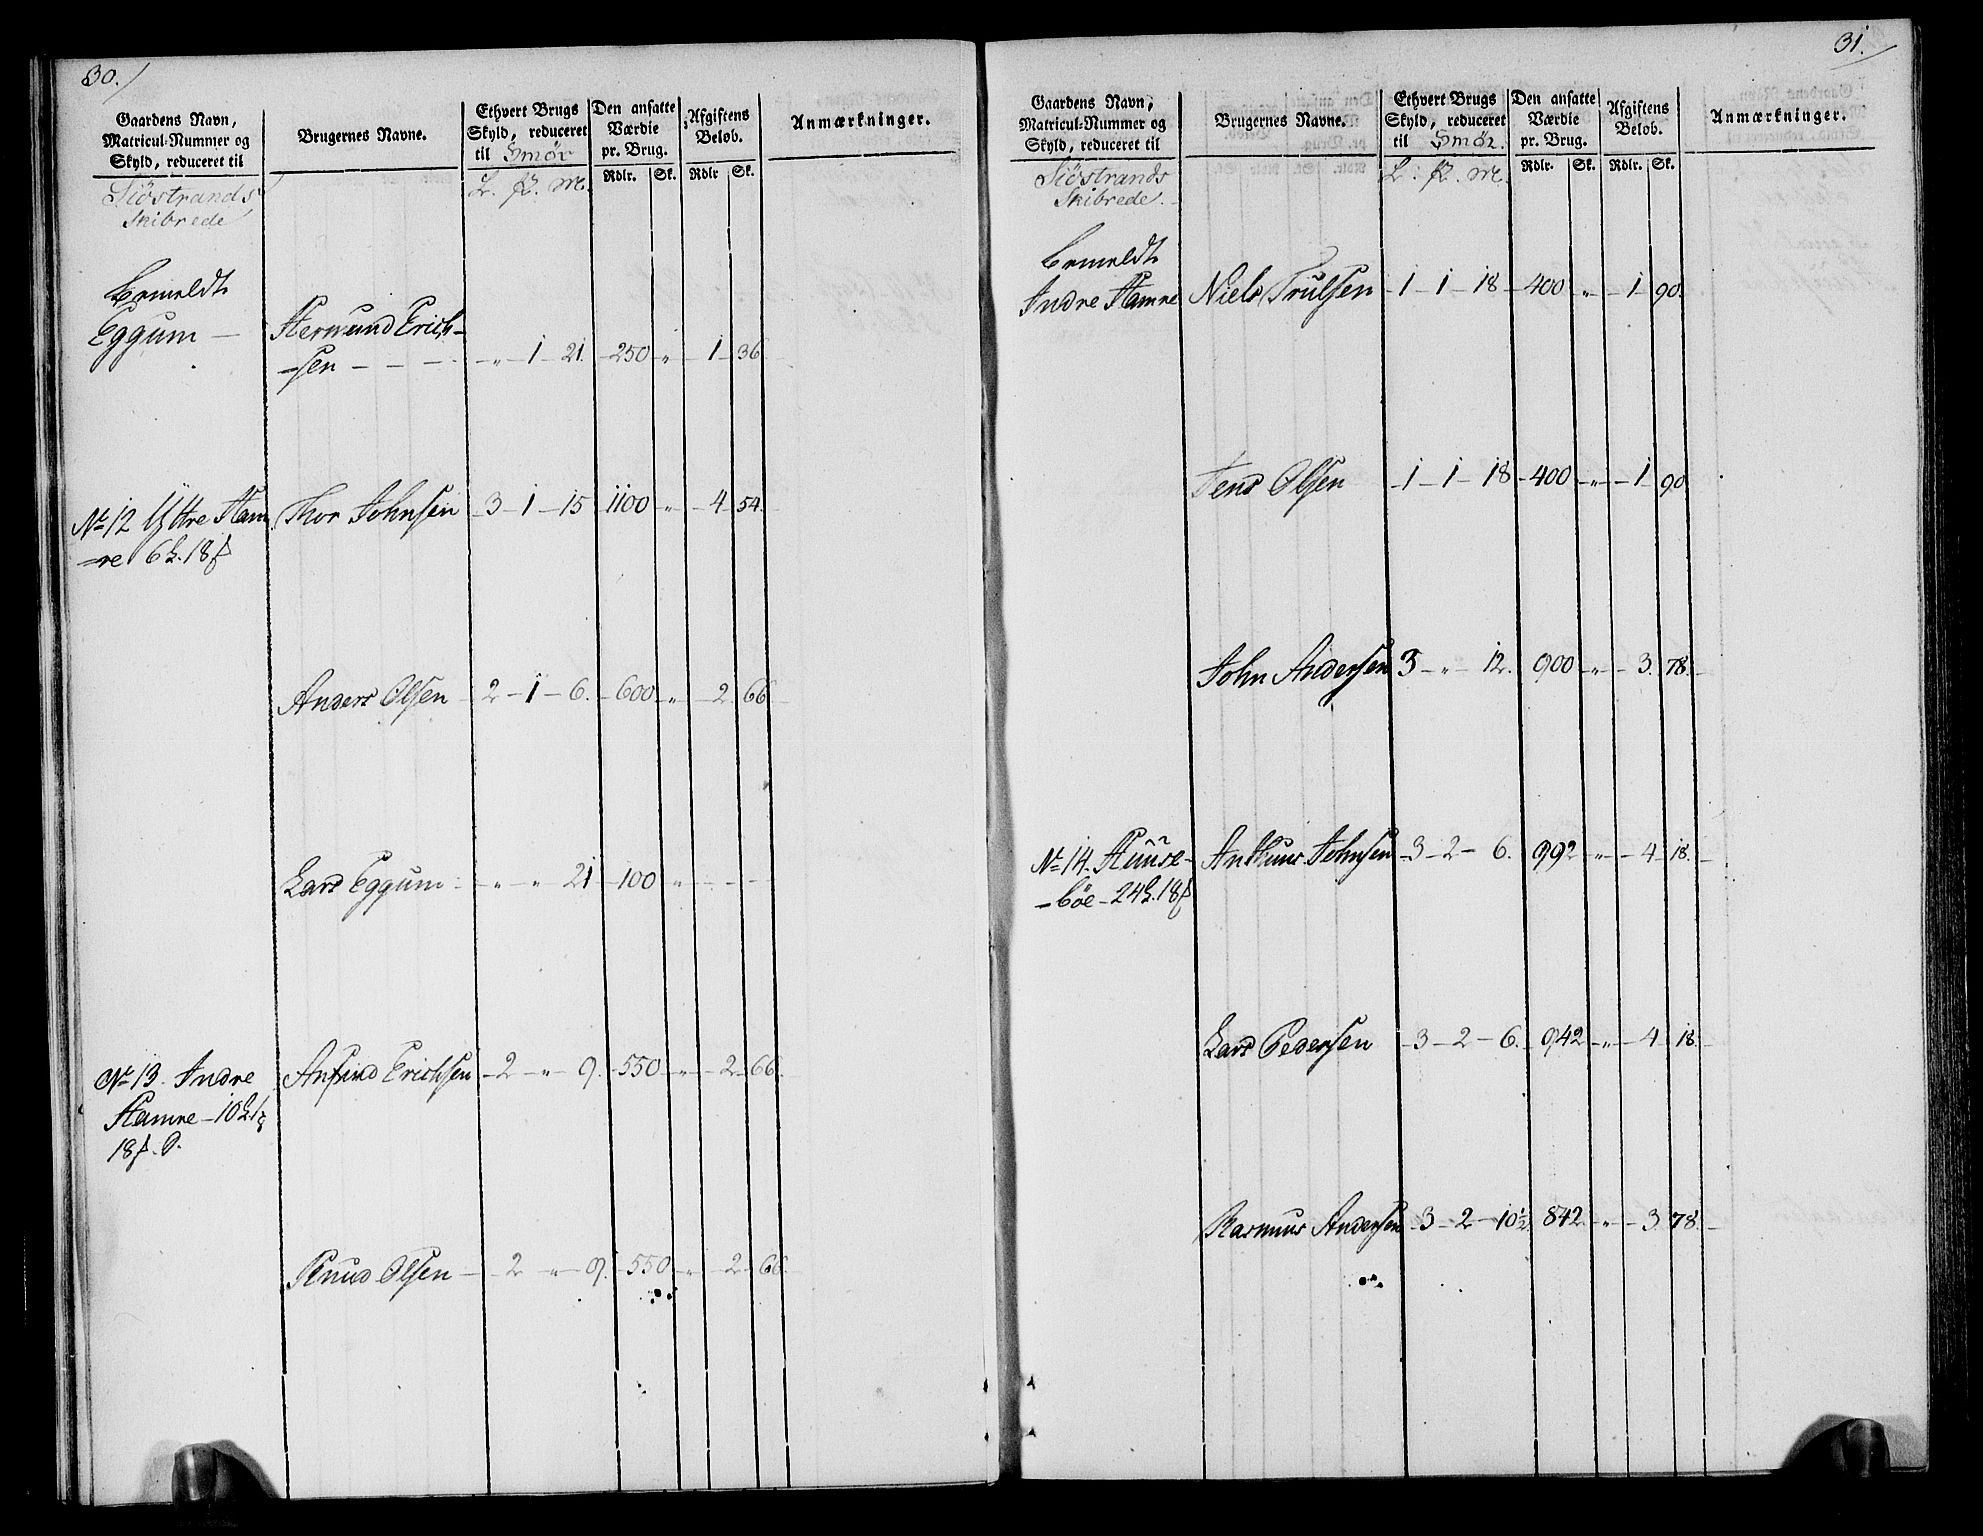 30.
Gaardens Navn, Matricul-Nummer og Skyld, reduceret til
Brugernes Navne.
Ethvert Brugs Skyld, reduceret til Smör
Den ansatte Værdie pr. Brug.
Afgiftens Belöb.
Anmærkninger.
Siöstrands Skibrede
L. R. M.
Rdlr. Sk. Rdlr Sk.
bemeldt
Eggum — Hermund Erich-
-sen — — — „ — 1 — 21. — 250 — „ — 1 — 36
No 12 Yttre Ham Thor Johnsen — 3 — 1 — 15 1100 „ — 4 — 54.
=re 6 L. 18
Anders Olsen — 2 — 1 — 6. — 600 — „ — 2. 66
Lars Eggum — „ — „ 21 — 100 „ — — —
No 13. Indre Anfind Erichsen — 2 — „ — 9. — 550 — „ — 2 — 66.
Hamre — 10 L. 1
18
Knud Olsen — 2 — „ — 9. — 550 — „ — 2 — 66.
31.
Gaardens Navn, Matricul-Nummer og Skyld, reduceret til
Brugernes Navne.
Ethvert Brugs Skyld, reduceret til Smör.
Den ansatte Værdie pr. Brug.
Afgiftens Belöb.
Anmærkninger.
Siöstrands Skibrede.
L. R. M.
Rdlr. Sk. Rdlr. Sk.
bemeldt
Indre Hamre Niels Trulsen — 1 — 1 — 18 — 400 „ — 1 — 90.
Jens Olsen — 1 — 1 — 18 — 400 — „ — 1 — 90
John Andersen 3 — „ — 12. 900 — „ — 3. 78.
No 14. Huuse- Anthuns Johnsen — 3 — 2 — 6. 992 — „ — 4 — 18.
-böe — 24 L. 18
Lars Pedersen — 3 — 2 — 6. 942 — „ — 4 — 18.
Rasmus Andersen — 3 — 2 — 10½ 842 — „ — 3. 78.